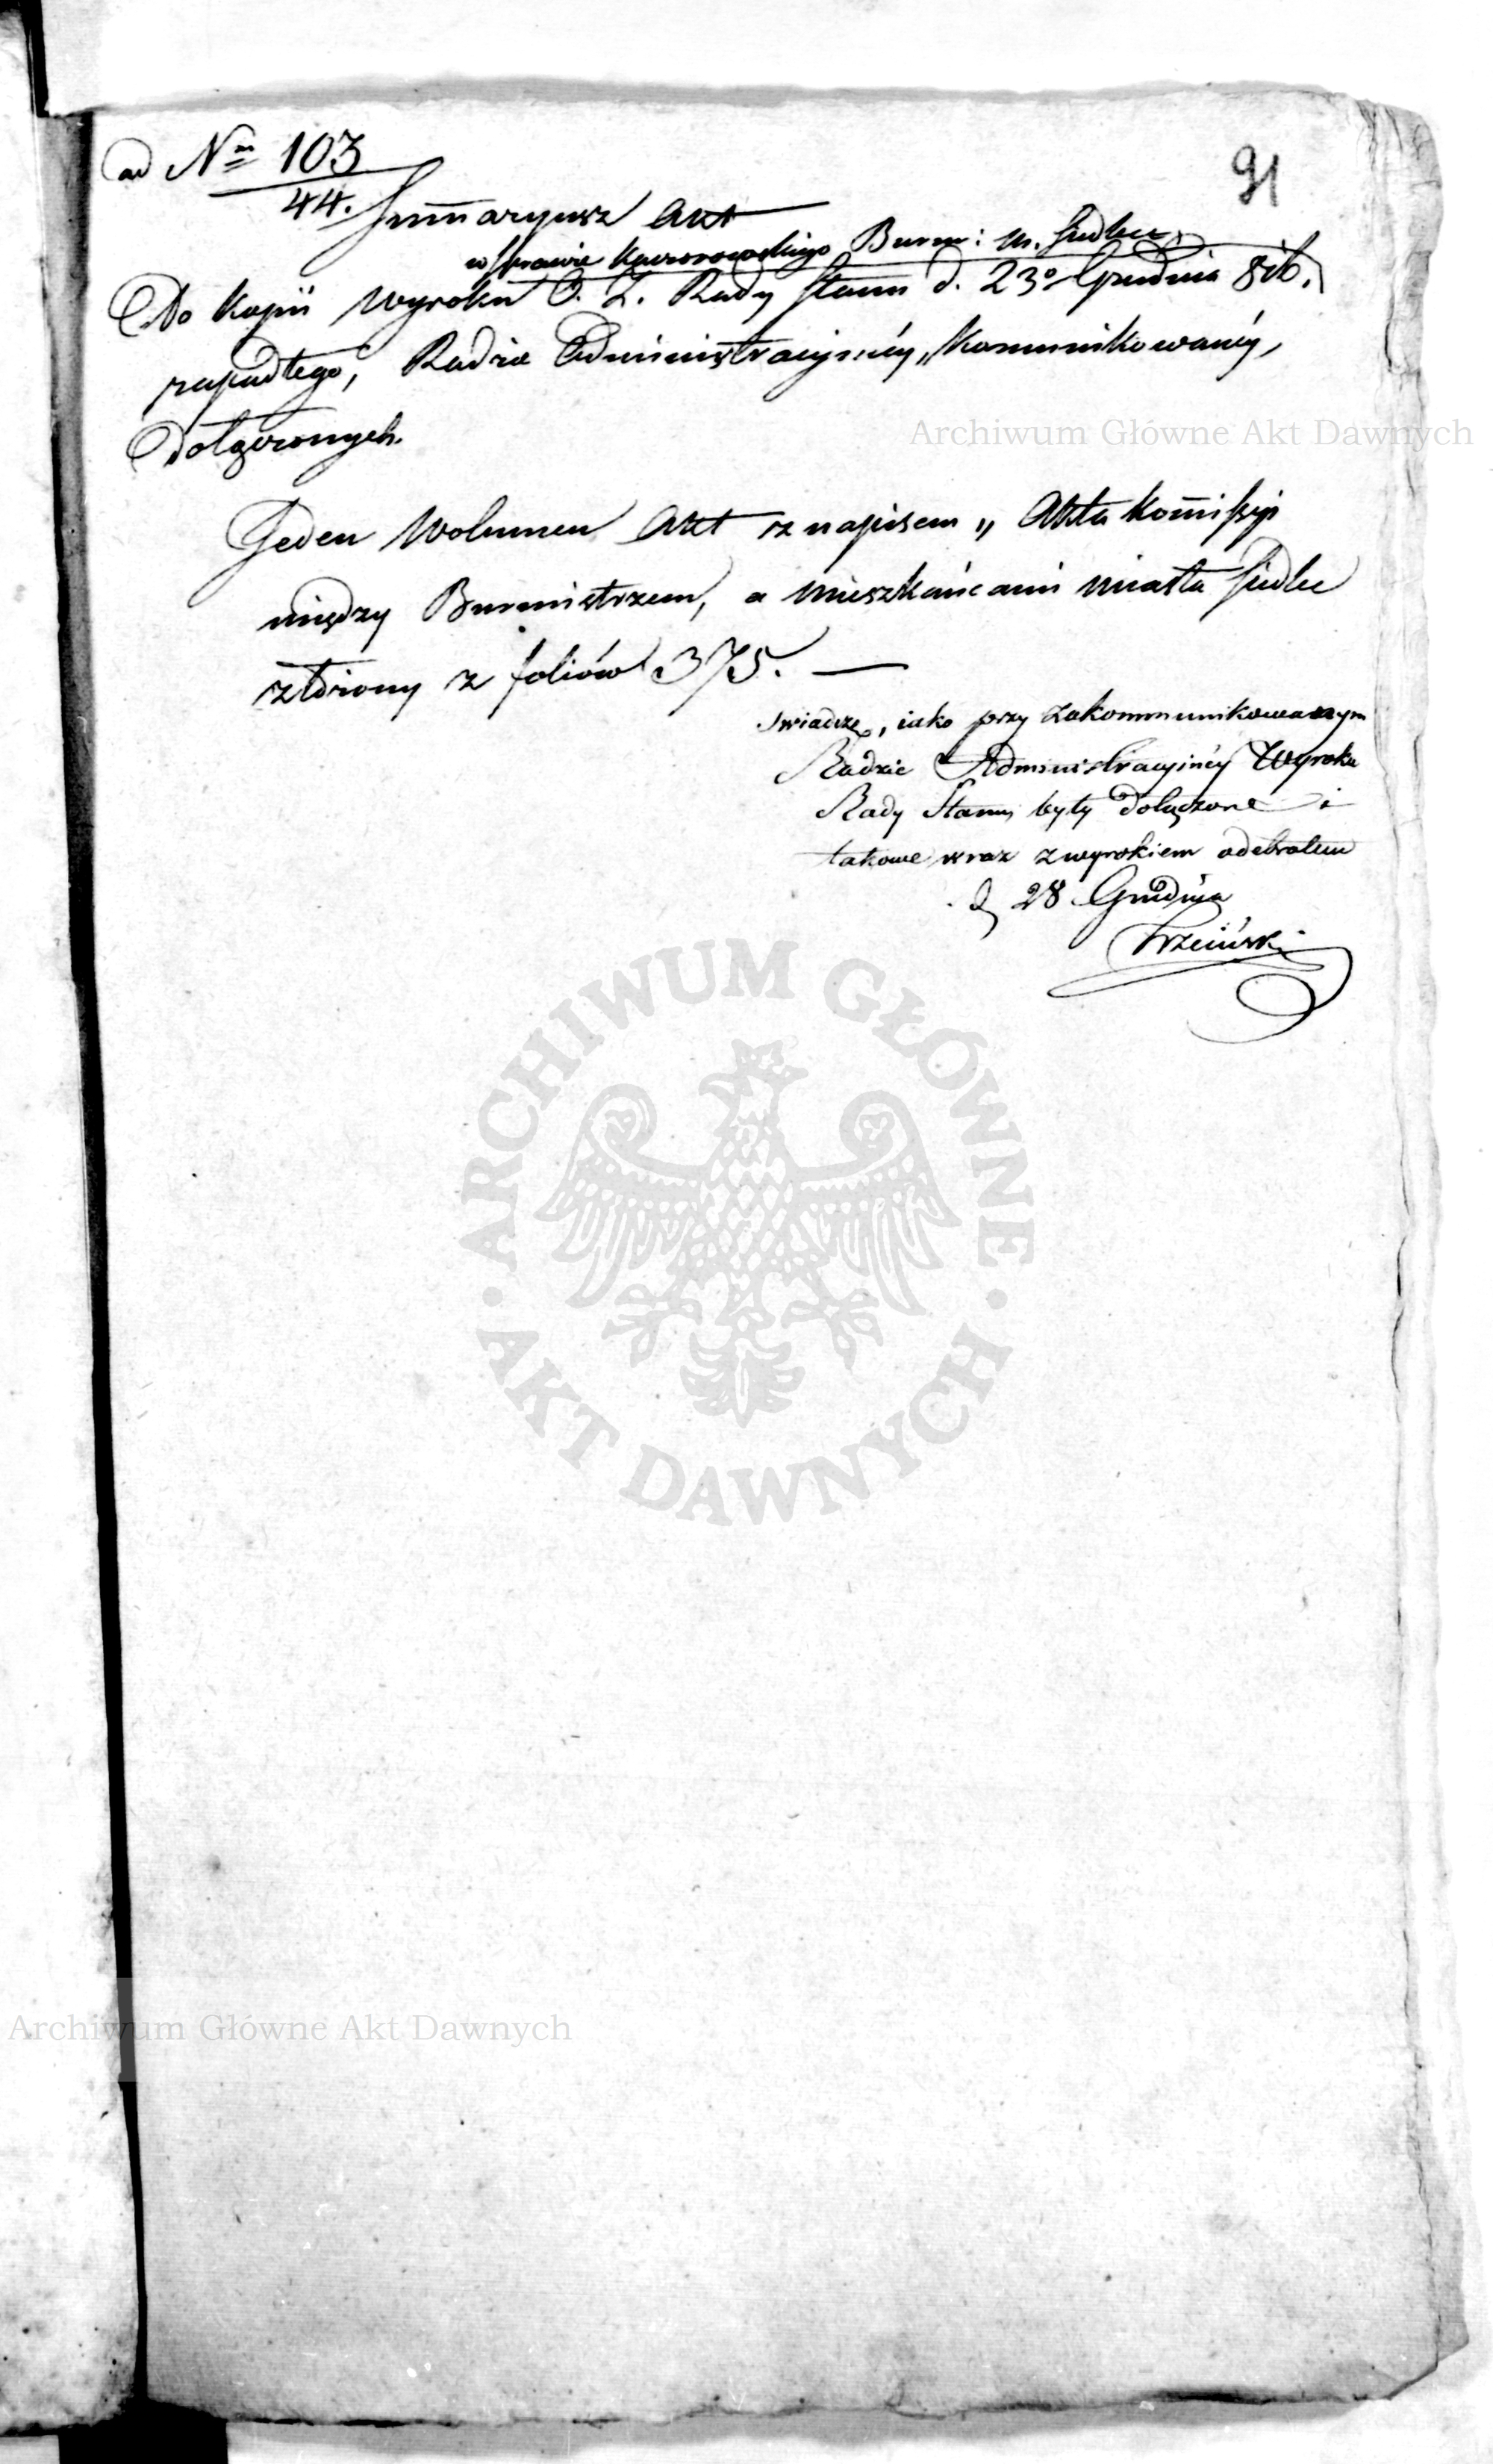 ad Nm 103
44.
91
Summaryusz Akt
w sprawie Kaczorowskiego Burm: m. Siedlec
Do Kopii Wyroku O. Z. Rady Stanu d. 23º Grudnia 816.
zapadłego, Radzie Administracyinéy, Kommunikowanéy,
dołączonych.
Archiwum Główne Akt Dawnych
Jeden Wolumen Akt z napisem „ Akta Kommissyi
między Burmistrzem, a mieszkańcami miasta Siedlec
złożony z foliów 375. —
swiadczę, iako przy zakommunikowanym
Radzie Administracyinéy Wyroku
Rady Stanu były dołączone i
takowe wraz z wyrokiem odebrałem
d 28 Grudnia
ARCHIWUM GŁÓWNE
AKT DAWNYCH
Archiwum Główne Akt Dawnych